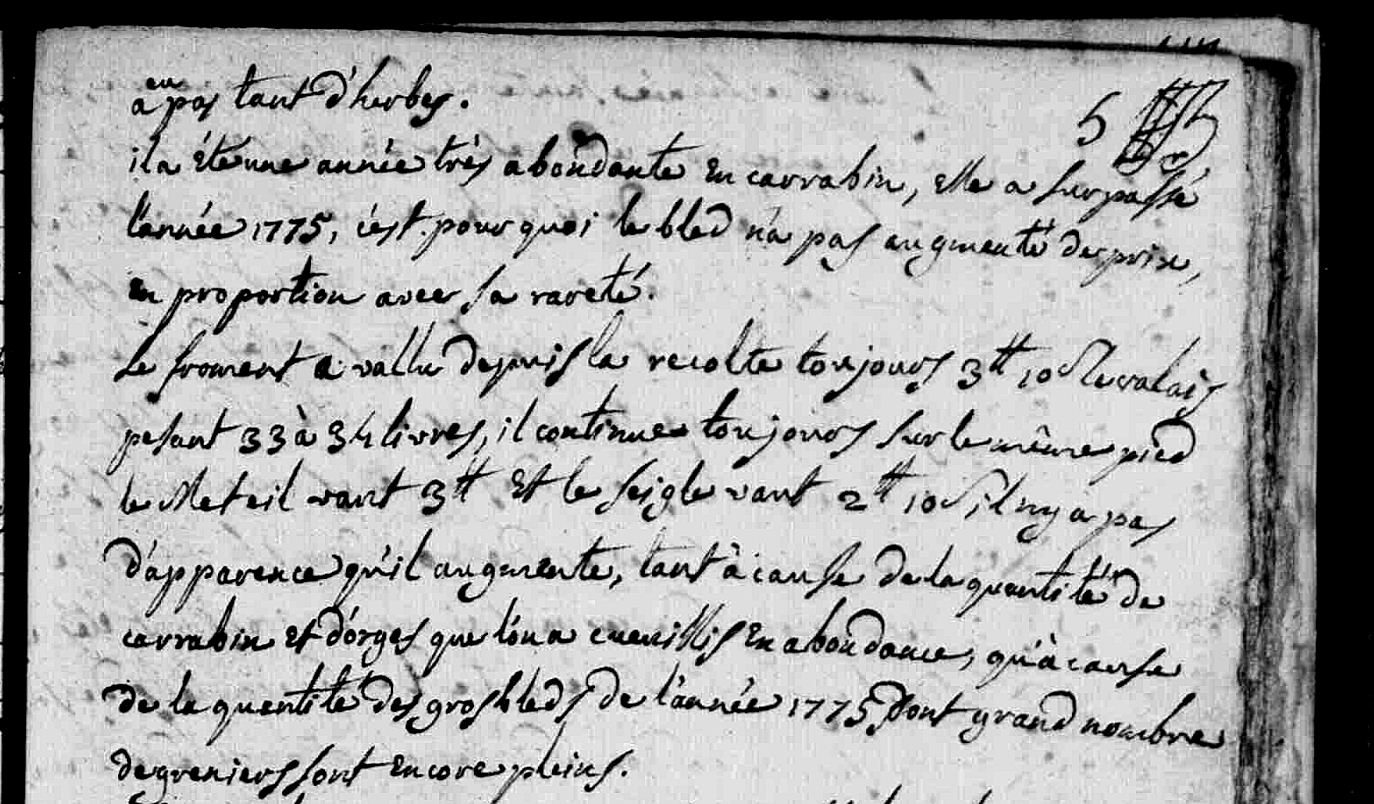 a eu pas tant d'herbes.
5
il a été une année très abondante en carrabin, elle a surpassé
l'année 1775, c'est pourquoi le bled n'a pas augmenté de prix,
en proportion avec sa rareté.
Le froment a vallu depuis la recolte toujours 3tt 10 s le
pesant 33 à 34 livres, il continue toujours sur le même pied
le Meteil vaut 3tt Et le seigle vaut 2tt 10 s, il ny a pas
d'apparence qu'il augmente, tant à cause de la quantité de
carrabin Et d'orges que l'on a cueuillis en abondance, qu'à cause
de la quantité des gros bleds de l'année 1775 dont grand nombre
de greniers sont encore pleins.